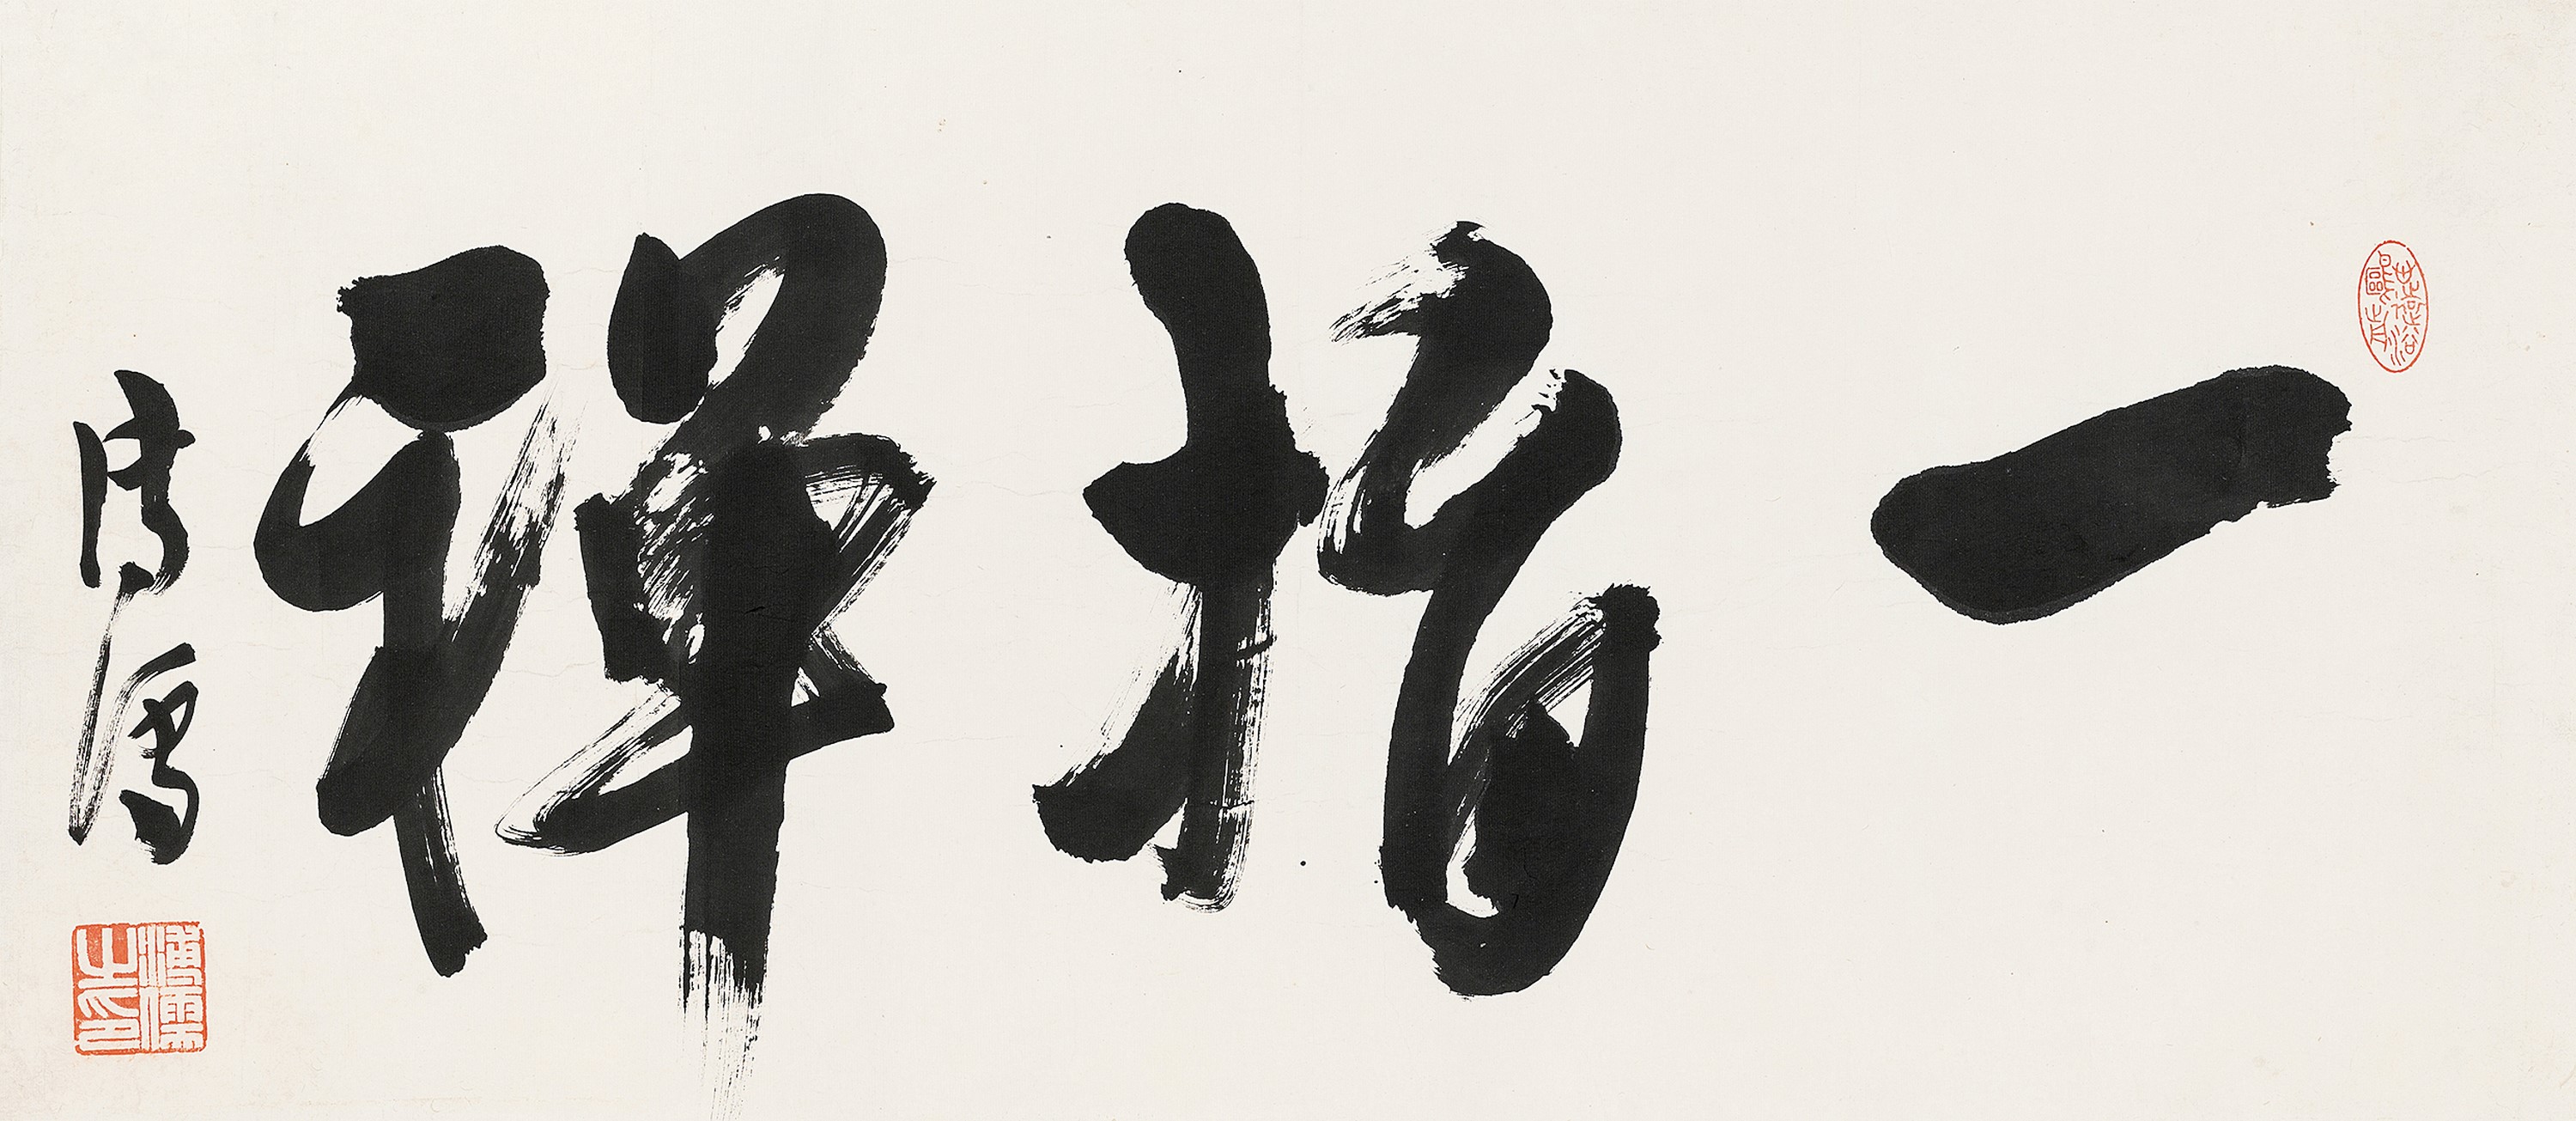 一指禪
溥儒
溥儒之印